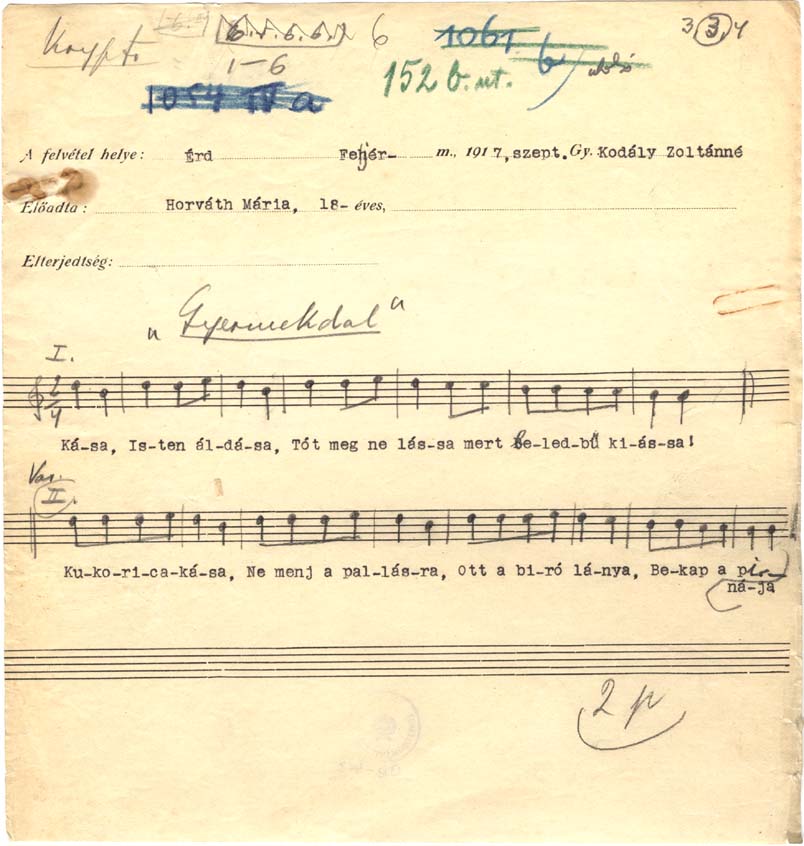 6 1061 b 3 3, 4
1-6 152 b. ut.
1054 IV a
A felvétel helye: Érd Fejér- m., 1917, szept. Gy. Kodály Zoltánné
Előadta: Horváth Mária, 18- éves,
Elterjedtség:
„Gyermekdal"
I.
2/4
Ká-sa, Is-ten ál-dá-sa, Tót meg ne lás-sa mert Be-led-bű ki-ás-sa!
Var.
II.
Ku-ko-ri-ca-ká-sa, Ne menj a pal-lás-ra, Ott a bi-ró lá-nya, Be-kap a pir-
ná-ja
2 p